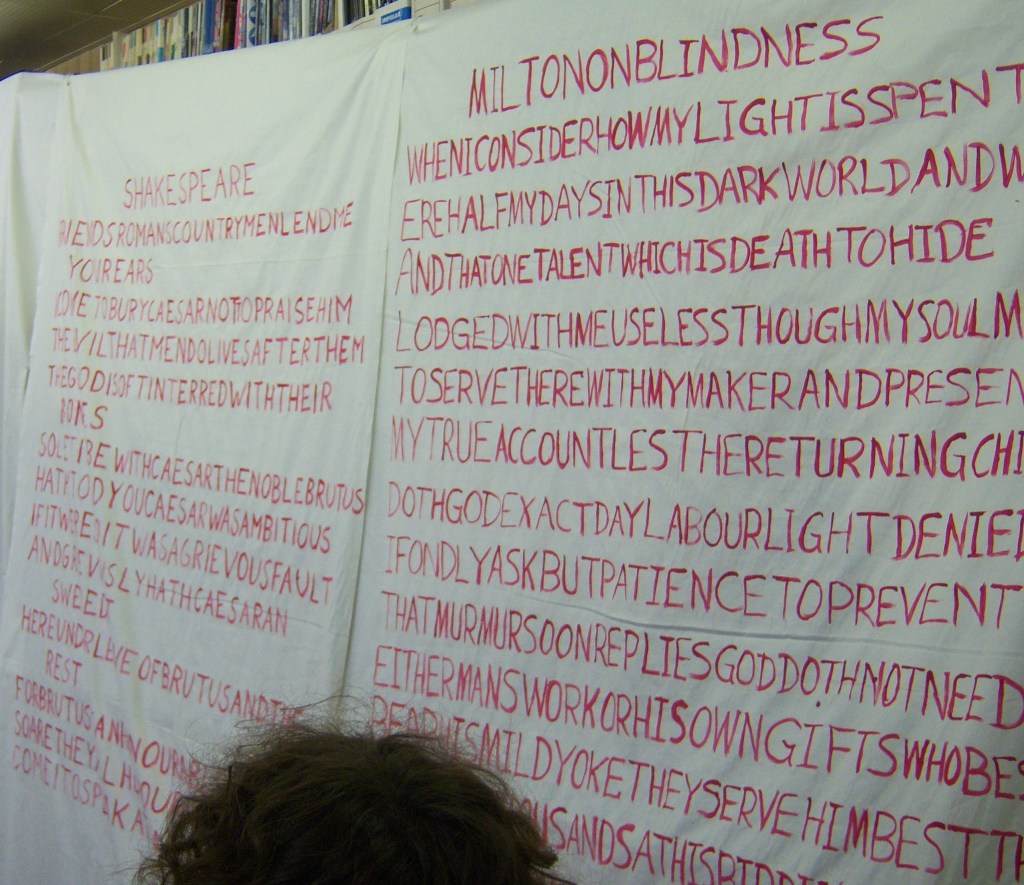 SHAKESPEARE
ROMANSCOUNTRYMENLENDME
YOIREARS
TOBURYCAESARNOTTOPRAISEHIM
THEVILTHATMENDOLIVESAFTERTHEM
THEGODISOFTINTERREDWITHTHEIR
SOLETIBEWITHCAESARTHENOBLEBRUTUS
YOUCAESARWASAMBITIOUS
ITWASAGRIEVOUSFAULT
HATHCAESARAN
SWEEIT
OFBRUTUSAND
REST
FORBRUTUS
MILTONONBLINDNESS
WHENICONSIDERHOWMYLIGHTISSPENT
EREHALFMYDAYSINTHISDARKWORLDANDW
ANDTHATONETALENTWHICHISDEATHTOHIDE
LODGEDWITHMEUSELESSTHOUGHMYSOULM
TOSERVETHEREWITHMYMAKERANDPRESEN
MYTRUEACCOUNTLESTHERETURNINGCHI
DOTHGODEXACTDAYLABOURLIGHTDENIED
IFONDLYASKBUTPATIENCETOPREVENT
THATMURMURSOONREPLIESGODDOTHNOTNEED
EITHERMANSWORKORHISOWNGIFTSWHOBES
BEARHISMILDYOKETHEYSERVEHIMBESTTH
USANDSATHISBIDD